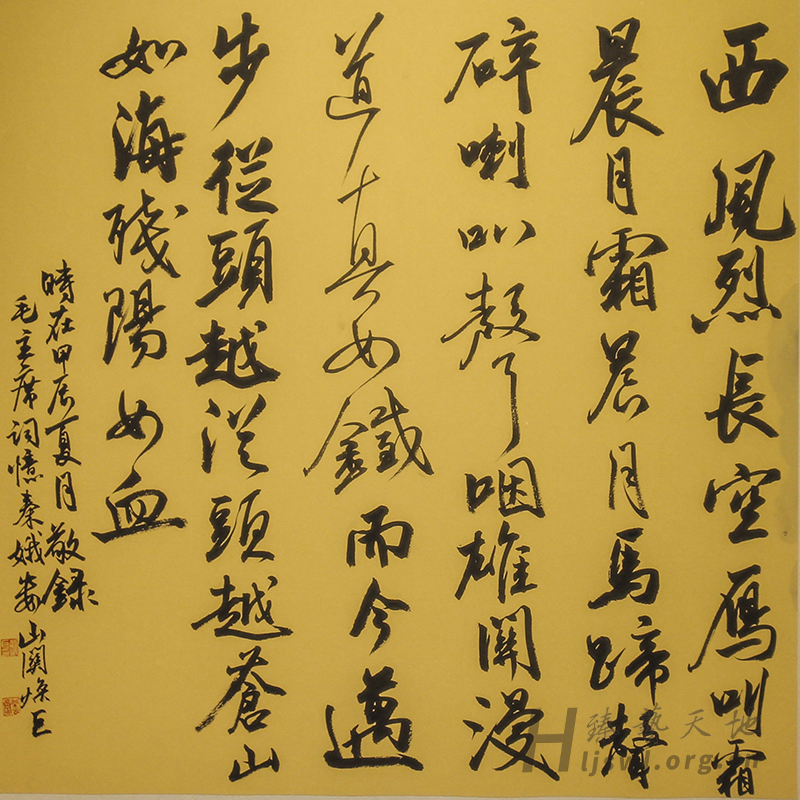 西風烈長空雁叫霜
晨月霜晨月馬蹄聲
碎喇叭聲咽雄關漫
道真如鐵而今邁
步從頭越從頭越蒼山
如海殘陽如血
時在甲辰夏月敬錄
毛主席詞憶秦娥婁山關
臻藝天地